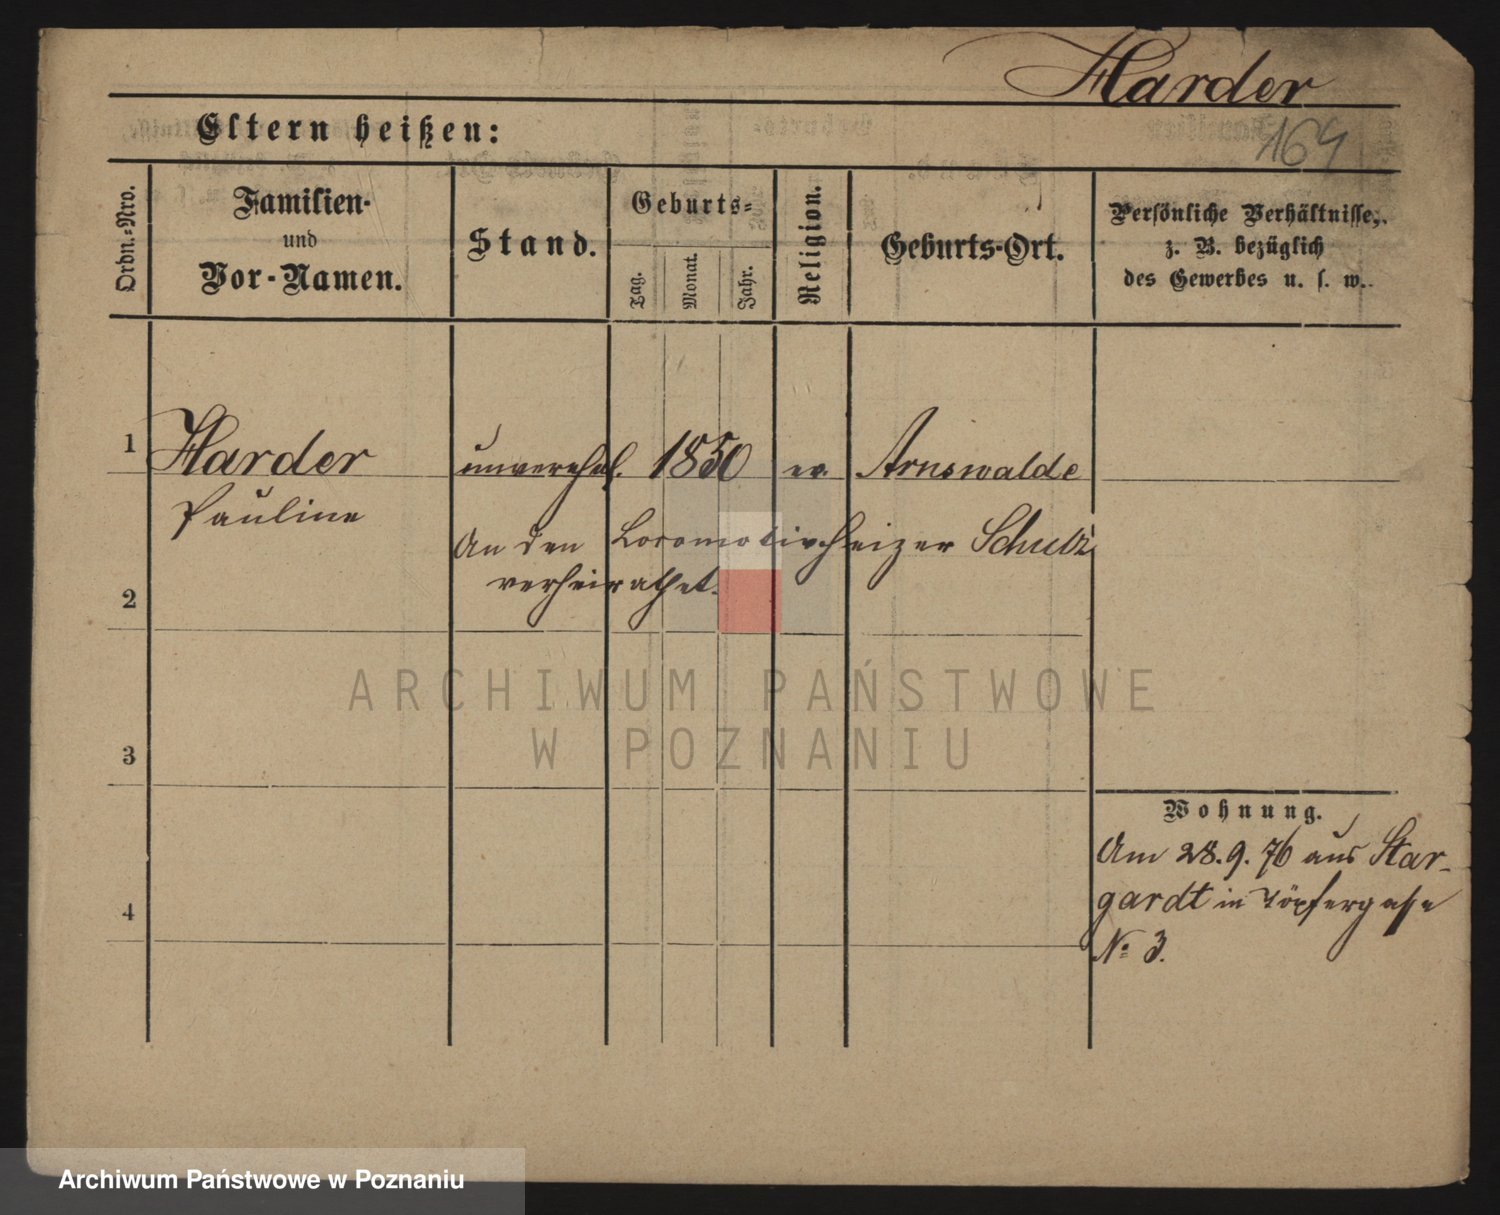 Harder
164
Eltern heißen:
Ordn.-Nro.
Familien-
und
Vor-Namen.
Stand.
Geburts-
Tag.
Monat.
Jahr.
Religion.
Geburts-Ort.
Persönliche Verhältnisse,
z. B. bezüglich
des Gewerbes u. s. w.
1 Harder unverehel. 1850 ev. Arnswalde
Pauline
An den Locomotivheizer Schulz
verheirathet.
2
3
4
Wohnung.
Am 28.9.76 aus Star-
gardt in Töpfergasse
No 3.
ARCHIWUM PAŃSTWOWE
W POZNANIU
Archiwum Państwowe w Poznaniu